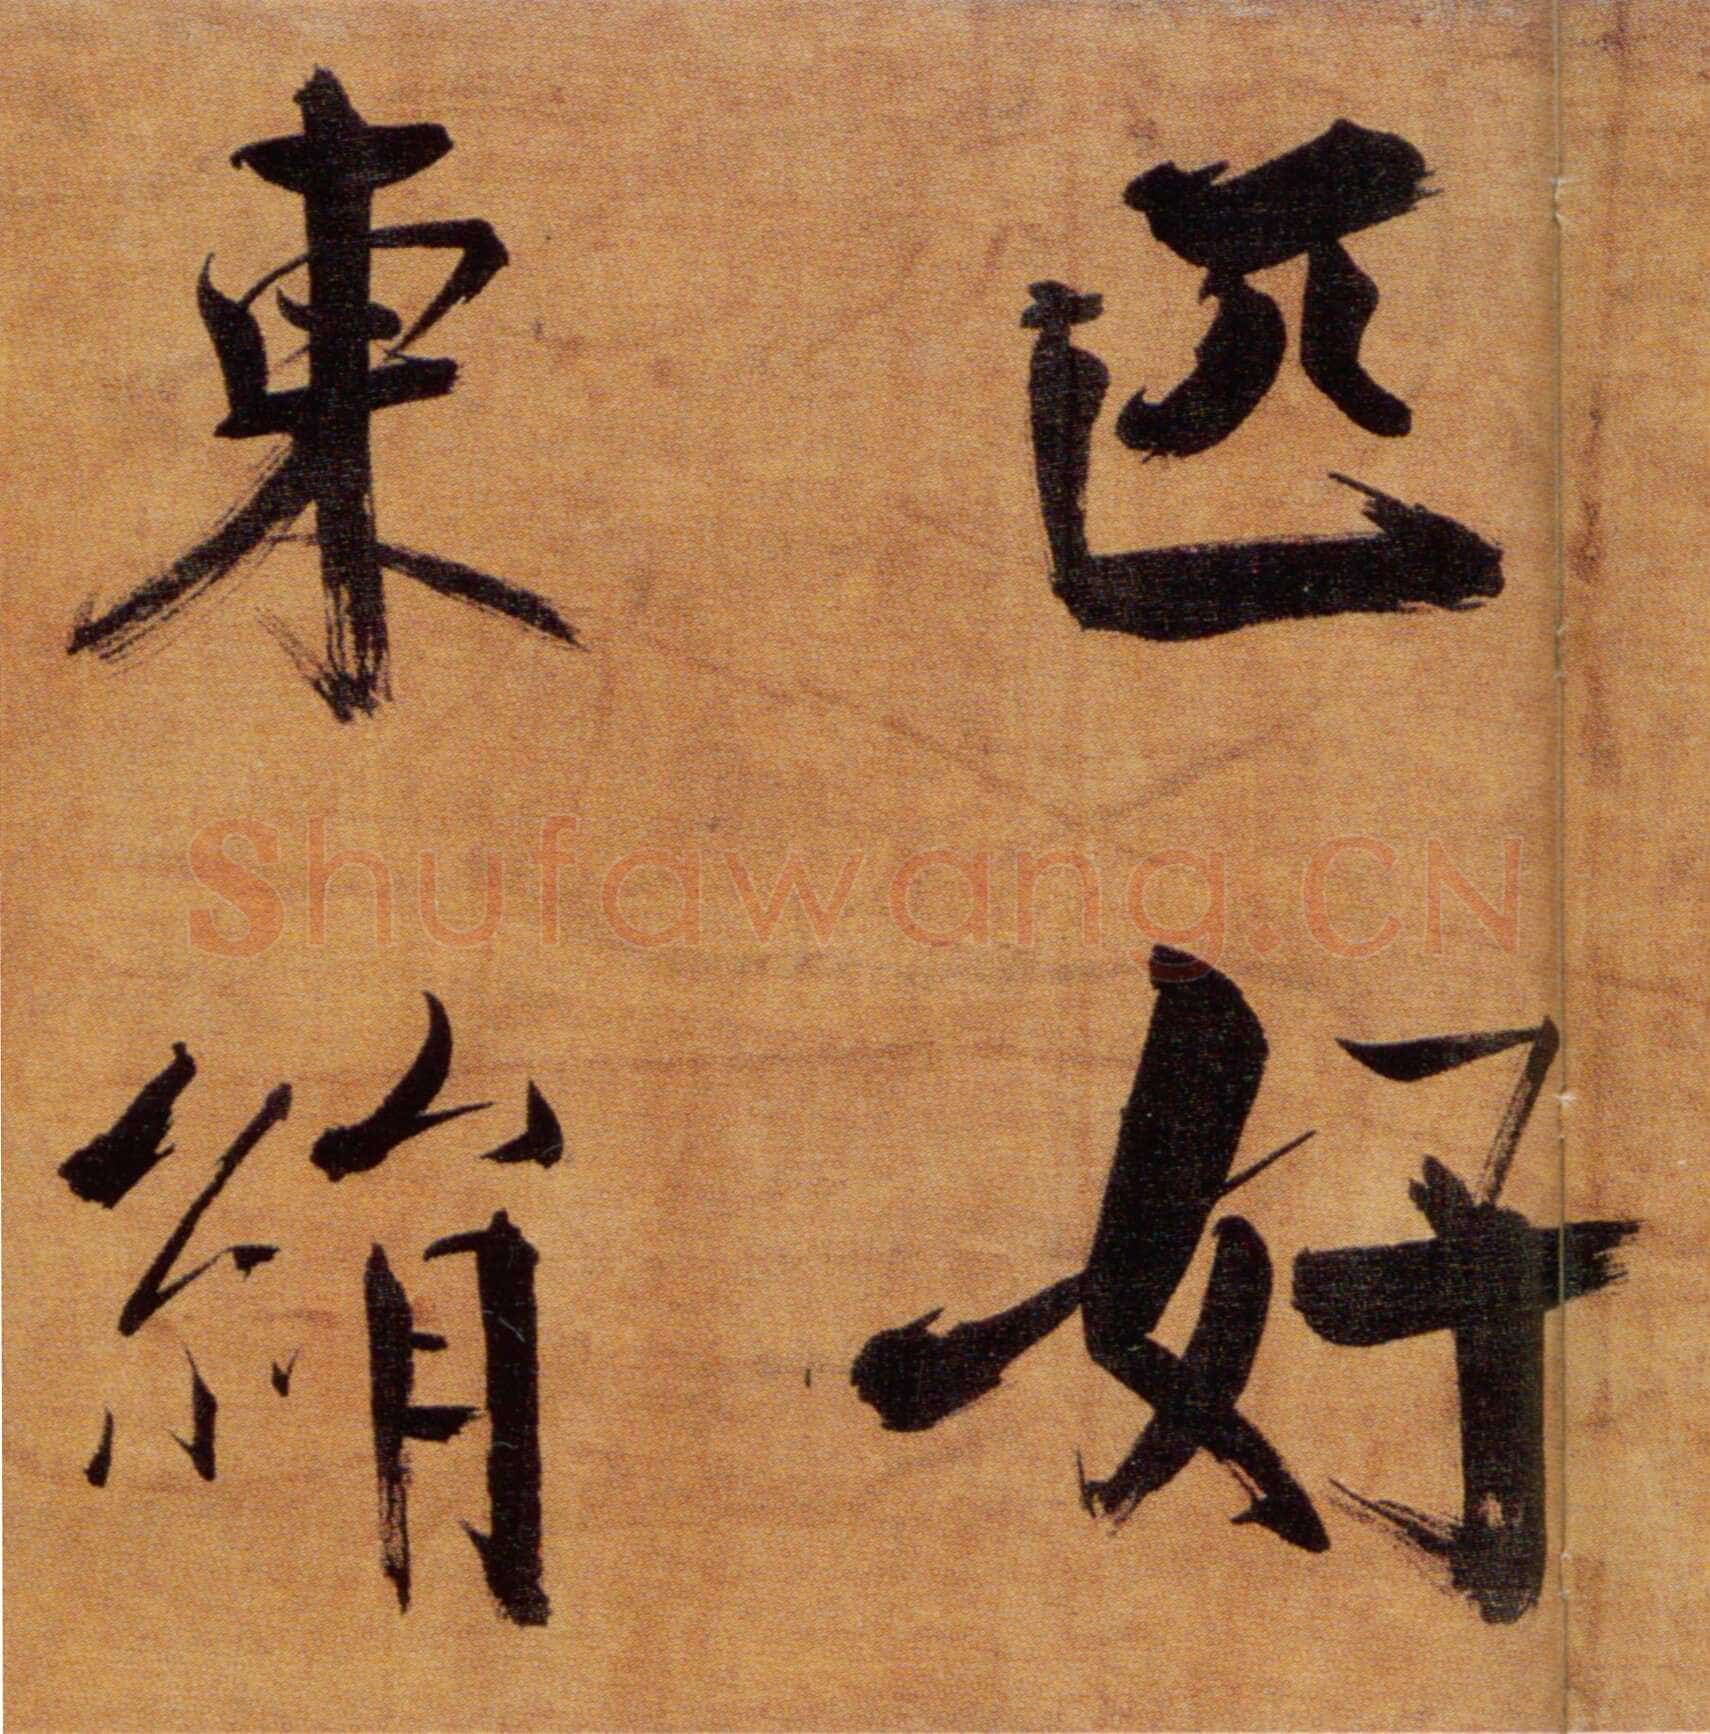 匹好
東絹
Shufawang.CN